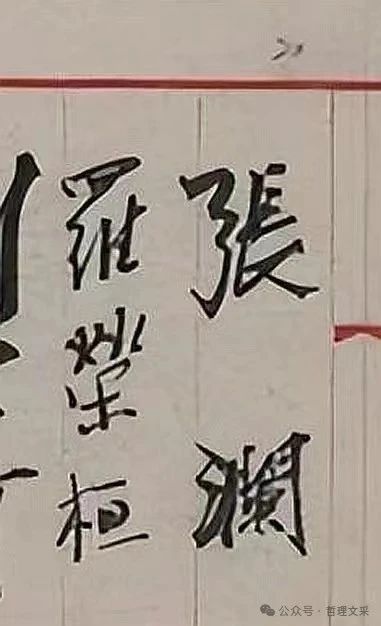 張瀾
羅榮桓
公众号 · 哲理文采